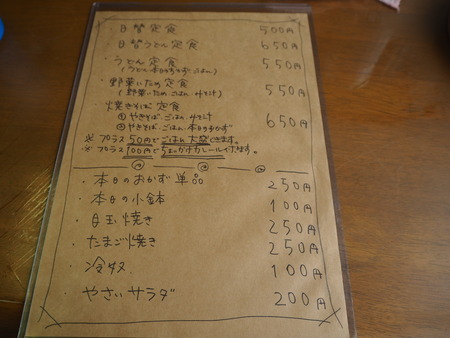 ・日替定食 500円
・日替うどん定食 650円
・うどん定食 550円
(うどん 本日のおかず・ごはん)
・野菜いため定食 550円
(野菜いため ごはん みそ汁)
・焼きそば定食 650円
①やきそば ごはん みそ汁
②やきそば ごはん 本日のおかず
※プラス50円でごはん大盛できます。
※プラス100円で カレー付きます。
・本日のおかず単品 250円
・本日の小鉢 100円
・目玉焼き 250円
・たまご焼き 250円
・冷奴 100円
・やさいサラダ 200円